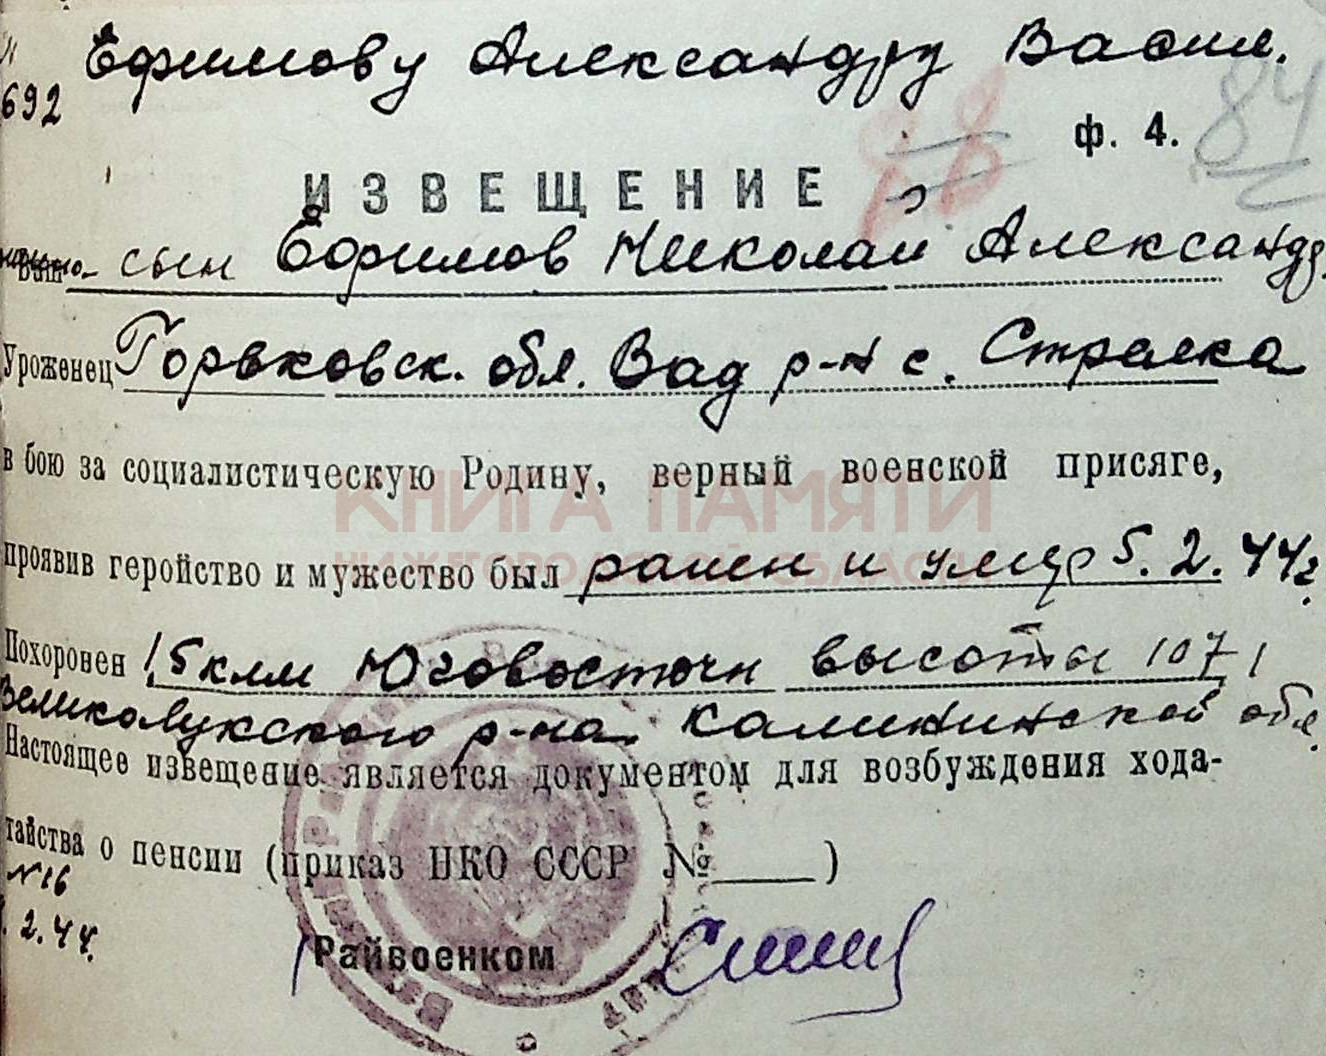 Ефимову Александру Васил.
692
ф. 4. 84
ИЗВЕЩЕНИЕ
сын Ефимов Николай Александр.
Уроженец Горьковск. обл. Вад р-н с. Стрелка
в бою за социалистическую Родину, верный военской присяге,
КНИГА ПАМЯТИ
проявив геройство и мужество был ранен и умер 5.2.44г.
НИЖЕГОРОДСКОЙ ОБЛАСТИ
Похоронен 1,5 клм Юговосточн высоты 107,1
Великолукского р-на Калининской обл.
Настоящее извещение является документом для возбуждения хода-
тайства о пенсии (приказ НКО СССР №____)
№16
2.44.
Райвоенком